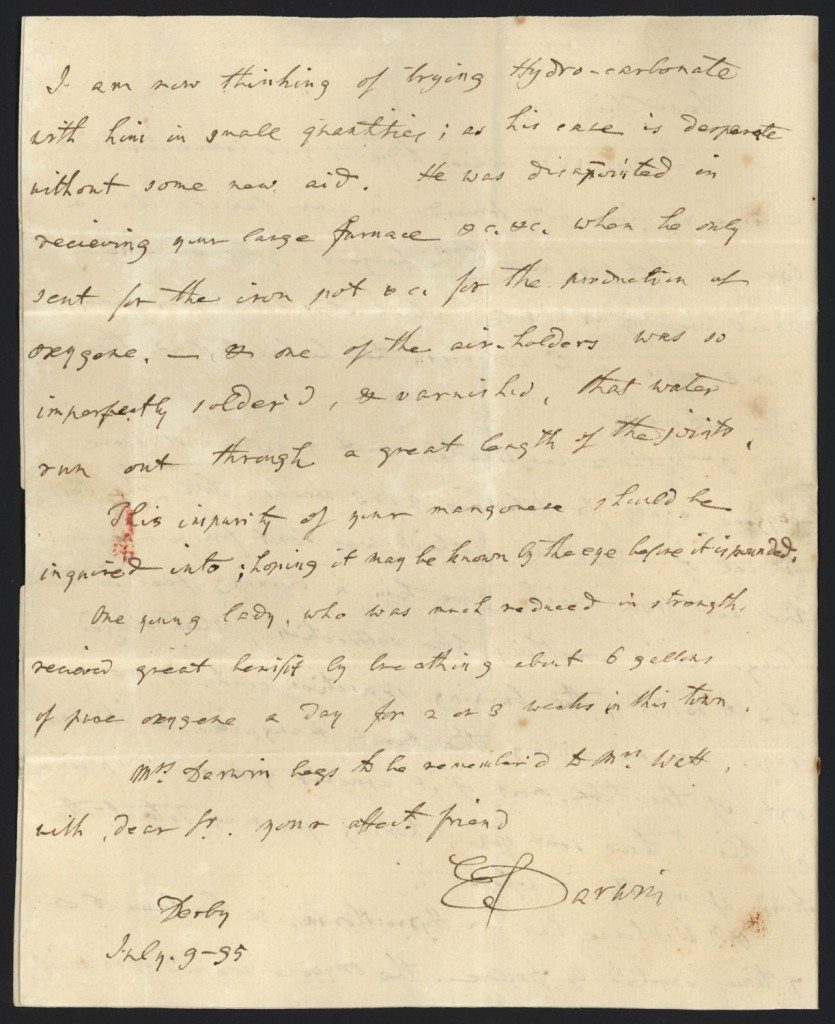 I am now thinking of trying Hydro-carbonate
with him in small quantities; as his case is desperate
without some new aid. He was disapointed in
recieving your large furnace &c. &c. when he only
sent for the iron pot &c. for the production of
oxygene. — & one of the air-holders was so
imperfectly solder'd, & varnished, that water
run out through a great length of the joints.
This impurity of your manganese should be
inquired into; hoping it may be known by the eye before it is pounded.
One young lady, who was much reduced in strength,
recieved great benifit by breathing about 6 gallons
of pure oxygene a day for 2 or 3 weeks in this town.
Mrs Darwin begs to be remember'd to Mrs Watt,
with, dear Sr. your affect. friend
E Darwin
Derby
July. 9-95